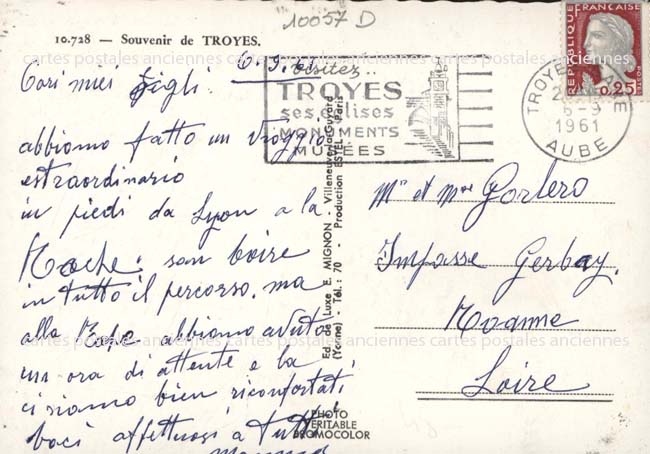 10057 D
10.728 — Souvenir de TROYES.
Cari miei figli
abbiamo fatto un Viaggio
estraordinario
in piedi da Lyon a la
Roche. san boire
in tutto il percorso. ma
alla Roche abbiamo avuto
un ora di attente e la
ci siamo bien riconfortati
baci affettuosi a tutti
Visitez..
TROYES
ses églises
MONUMENTS
MUSÉES
Ed. de Luxe E. MIGNON - Villeneuve-la-Guyard
(Yonne) - Tél.: 70 - Production ESTEL, Paris
PHOTO
VERITABLE
BROMOCOLOR
REPUBLIQUE FRANÇAISE
0,25
POSTES
TROYES
6-9
1961
AUBE
Mr et Mme Gorlero
Impasse Gerbay.
Roanne
Loire
cartes postales anciennes cartes postales anciennes cartes postales anciennes
cartes postales anciennes cartes postales anciennes cartes postales anciennes
cartes postales anciennes cartes postales anciennes cartes postales anciennes